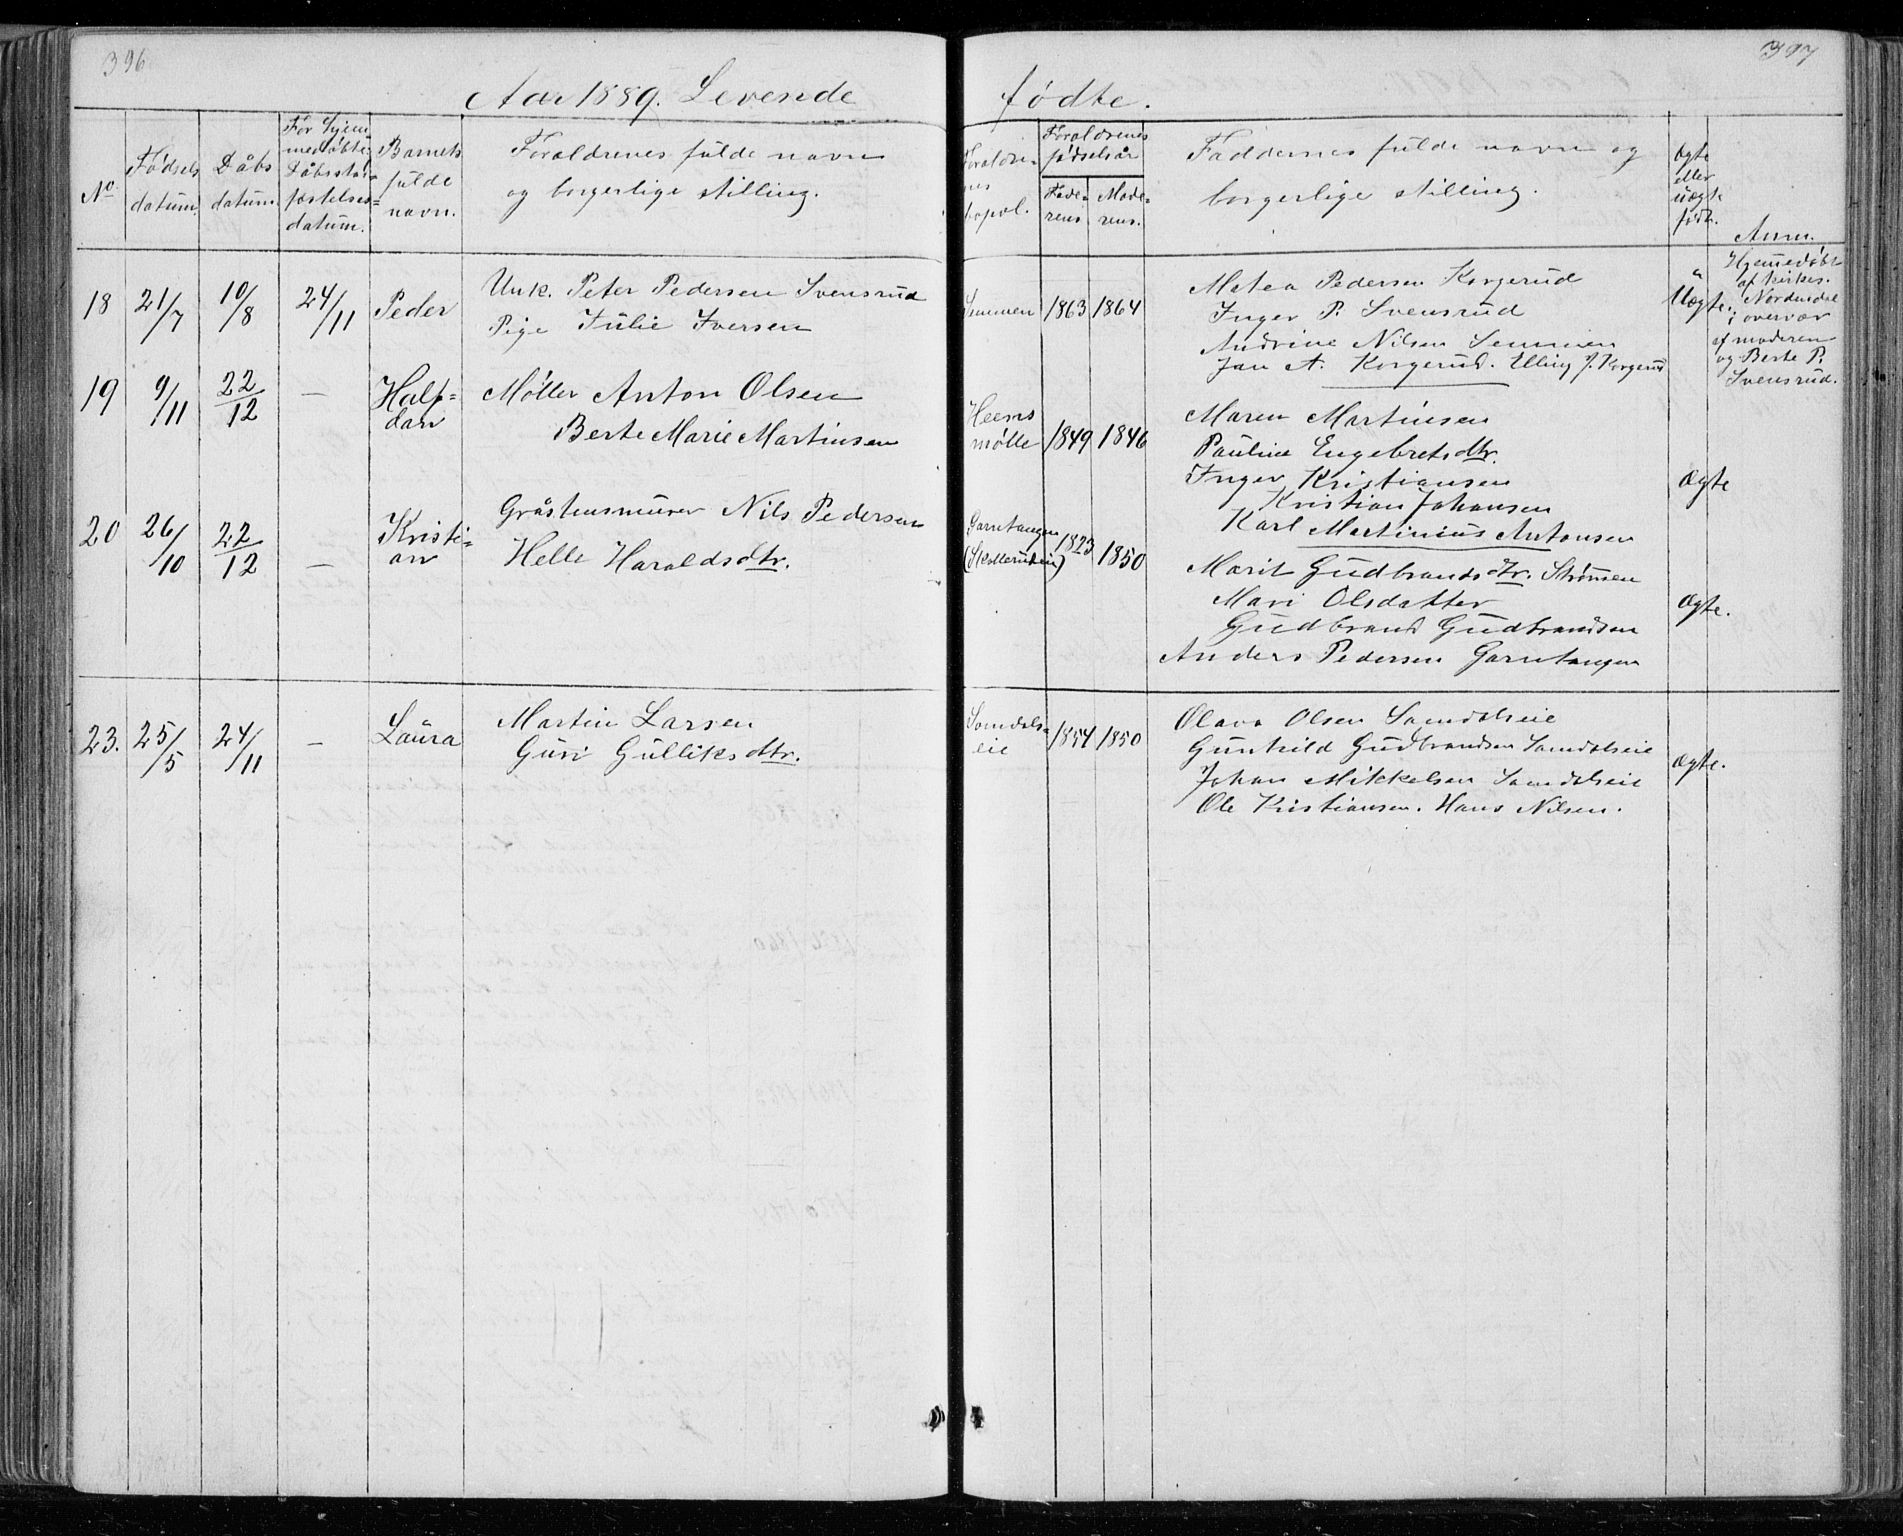 396
397
Aar 1889. Levende fødte.
No
Fødsels datum.
Dåbs datum.
For hjemmedøbte: Dåbsstadfæstelses= datum.
Barnets fulde navn.
Forældrenes fulde navn og borgerlige stilling.
Forældrenes bopæl.
Forældrenes fødselsår
Faderens
Moderens.
Faddernes fulde navn og borgerlige stilling.
Ægte eller uægte født.
Anm.
18 21/7 10/8 24/11 Peder
Unk. Peter Pedersen Svensrud
Pige Julie Iversen
1863 1864
Matea Pedersen Korgerud
Inger P. Svensrud
Andrine Nilsen
Jan A. Korgerud. Elling J. Korgerud
Uægte.
Hjemmedøbt
af kirkes.
Nordendel
i overvær
af moderen
og Berte P.
Svensrud.
19 9/11 22/12 — Half=
dan
Møller Anton Olsen
Berte Marie Martinsen
Heens
mølle
1849 1846
Maren Martinsen
Pauline Engebretsdtr.
Inger Kristiansen
Kristian Johansen
Karl Martinius Antonsen
Ægte
20 26/10 22/12 — Kristi=
an
Gråstensmurer Nils Pedersen
Helle Haraldsdtr.
Garntangen
1823 1850
Marit Gudbrandsdtr. Strømsen
Mari Olsdatter
Gudbrand Gudbrandsen
Anders Pedersen Garntangen
Ægte.
23. 25/5 24/11 — Laura
Martin Larsen
Guri Gulliksdtr.
Somdals=
eie
1854 1850
Olava Olsen Samdalseie
Gunhild Gudbrandsen Samdalseie
Johan Mikkelsen Samdalseie
Ole Kristiansen. Hans Nilsen.
Ægte.